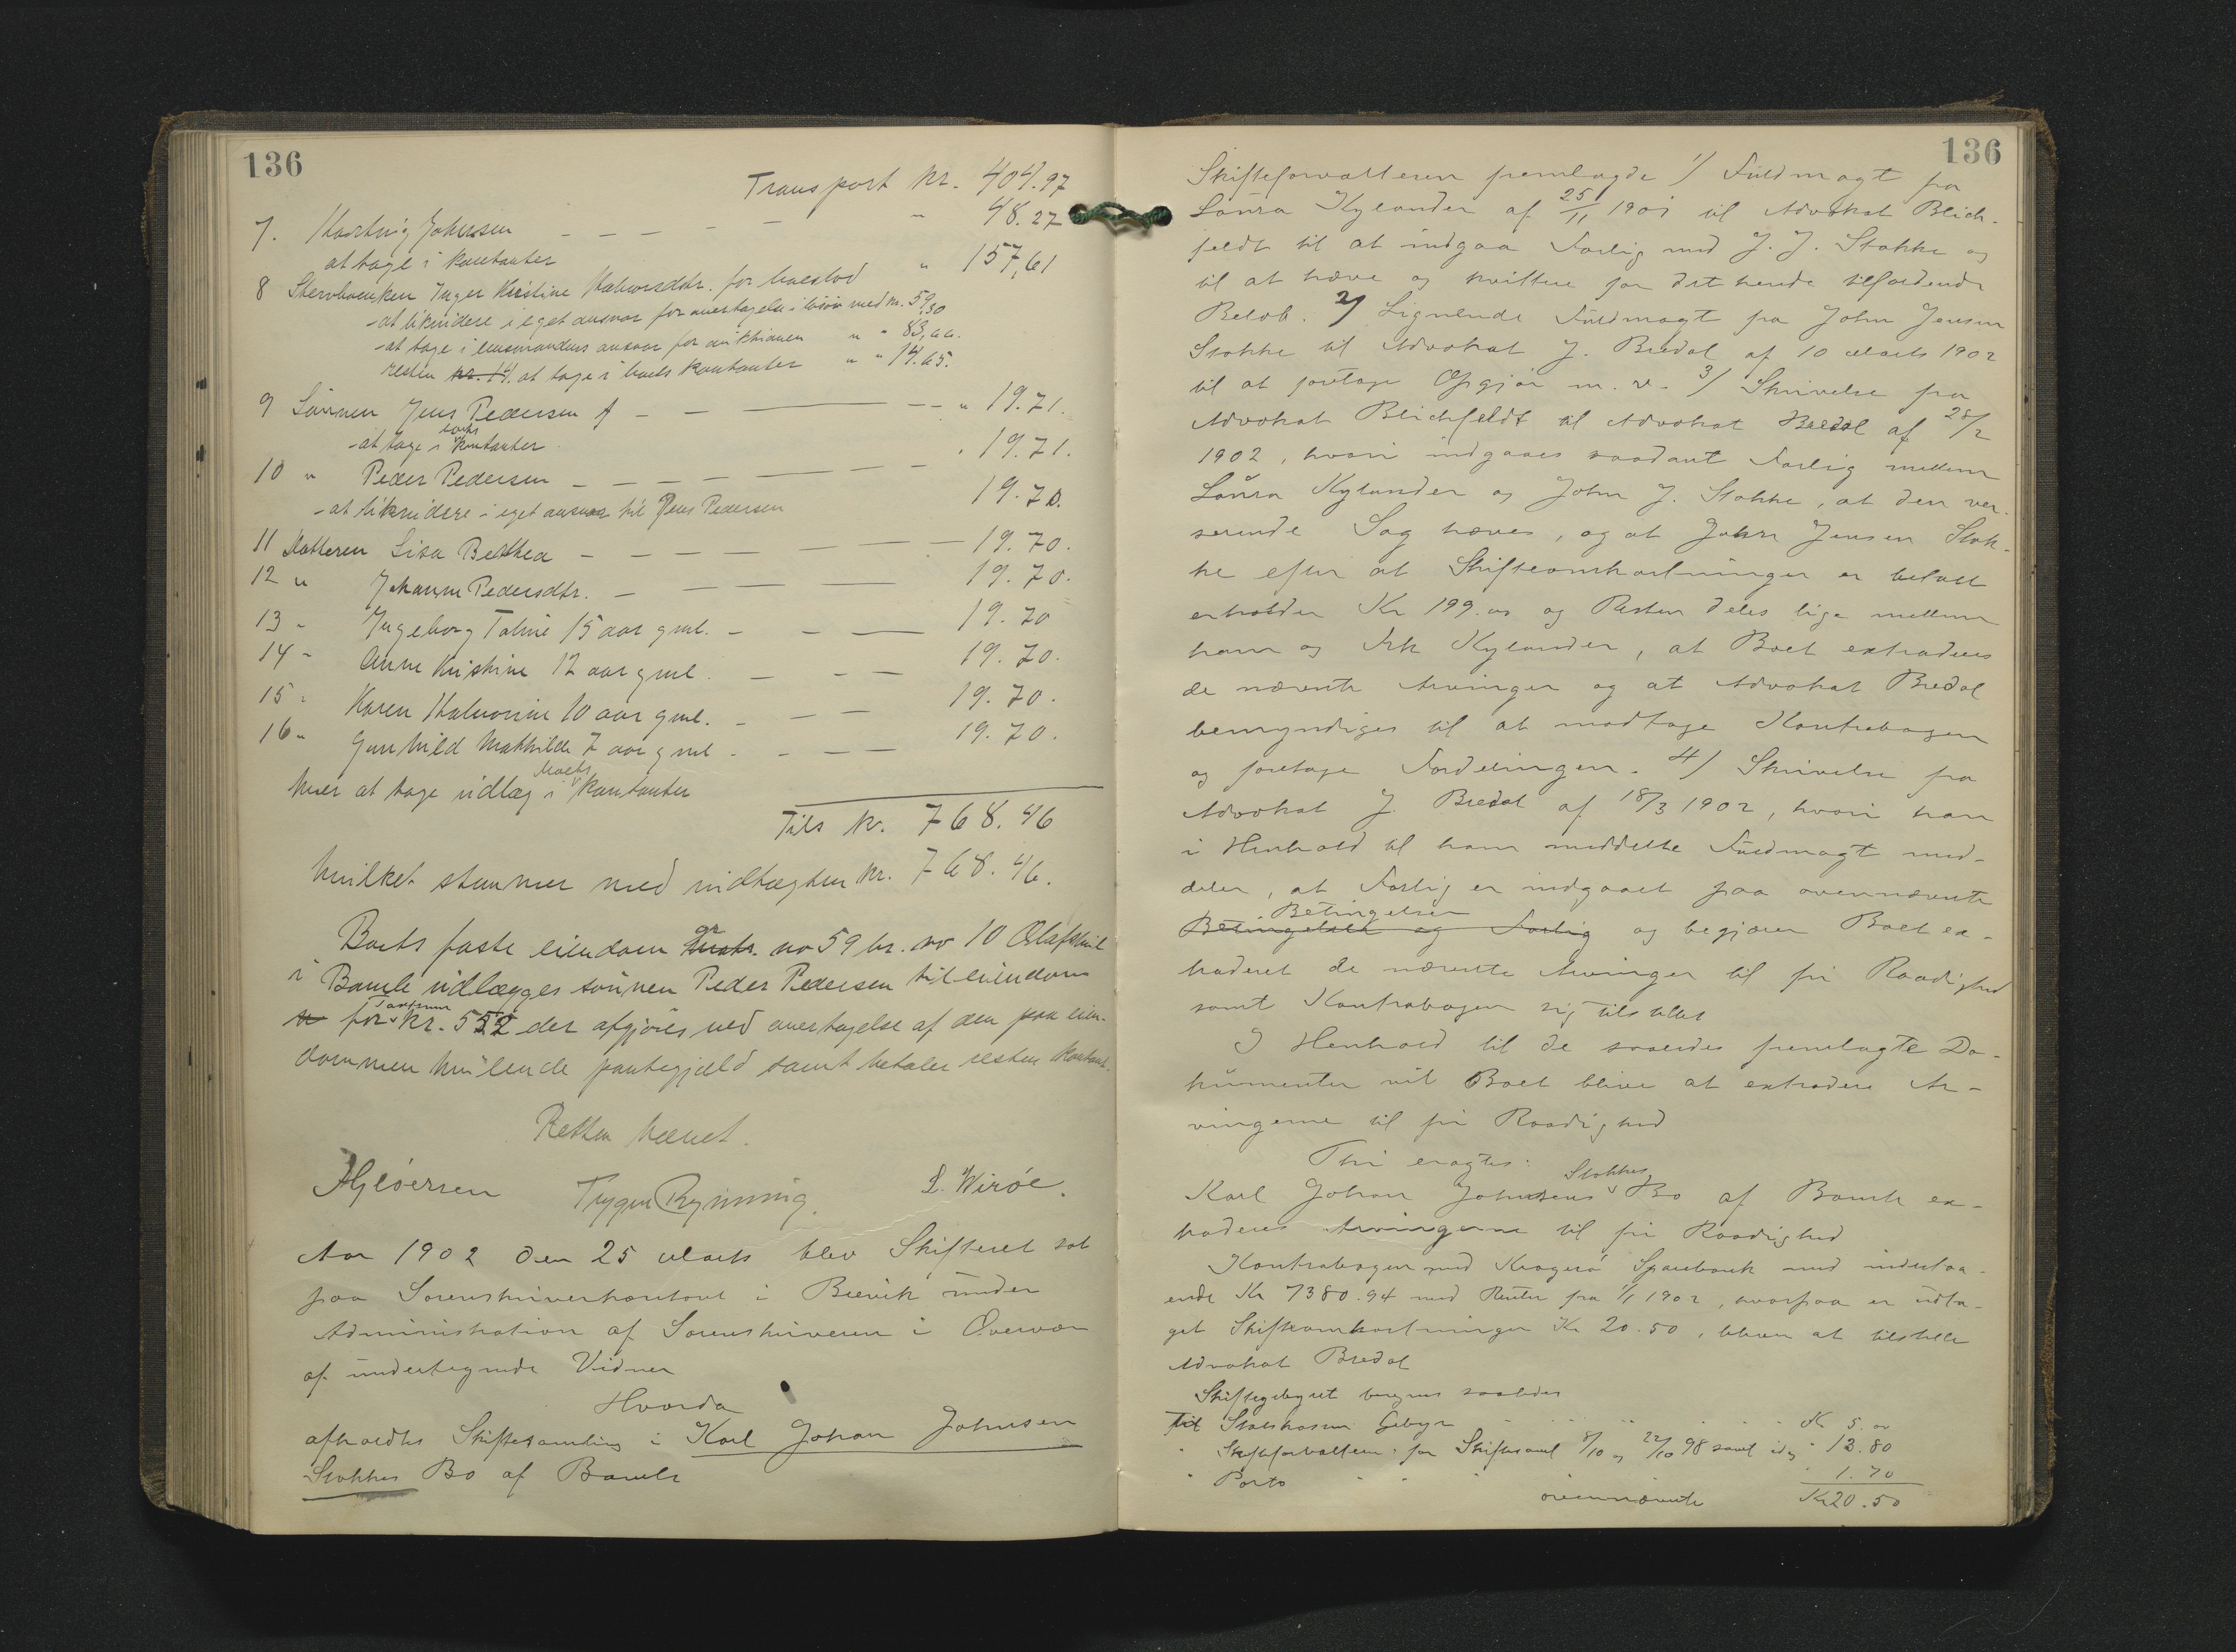 136
Transport kr. 404.97
7. Hartvig Johnsen — — — — — „ 48.27
at tage i kontanter
8 Stervboenken Inger Kristine Halvorsdtr. for boeslod „ 157,61
- at likvidere i eget ansvar for overtagelse i boet med kr. 59,30
- at tage i lensmandens ansvar for auktionen „ „ 83,66.
resten kr. 14. at tage i boets kontanter „ „ 14.65.
9 Sönnen Jens Pedersen — — — — „ 19.71.
- at tage i boets kontanter.
10 „ Peder Pedersen — — — — — — „ 19.71.
- at likvidere i eget ansvar til Jens Pedersen 19.70.
11 Datteren Lisa Bethea — — — — — — 19.70.
12 „ Johanne Pedersdtr. — — — 19.70.
13 „ Ingeborg Tomine 15 aar gml. — — — 19.70
14 „ Anne Kristine 12 aar gml. — — — 19.70.
15 „ Karen Halvorine 10 aar gml. — — — 19.70.
16 „ Gunhild Mathilde 7 aar gml — — — 19.70.
hver at tage udlæg i boets kontanter
Tils kr. 768.46
hvilket stemmer med indtægten kr. 768.46.
Boets faste eiendom gr no 59 br. no 10 Olafsmil
i Bamle udlægges sönnen Peder Pedersen til eiendom
for Taxtsum kr. 552 der afgjöres ved overtagelse af den paa eien-
dommen hvilende pantegjæld samt betaler resten kontant.
Retten hævet.
Hj Iversen Trygve Rynning. L. Wiröe.
Aar 1902 den 25 Marts blev Skifteret sat
paa Sorenskriverkontoret i Brevik under
Administration af Sorenskriveren i Overvær
af undertegnede Vidner
Hvorda
afholdtes Skiftesamling i Karl Johan Johnsen
Stokkes Bo af Bamle
136
Skifteforvalteren fremlagde 1/ Fuldmagt fra
Laura Kylander af 25/11 1901 til Advokat Blich-
feldt til at indgaa Forlig med J. J. Stokke og
til at hæve og kvittere for det hende tilfaldende
Belöb. 2/ Lignende Fuldmagt fra John Jensen
Stokke til Advokat J. Bredal af 10 Marts 1902
til at foretage Opgjör m. v. 3/ Skrivelse fra
Advokat Blichfeldt til Advokat Bredal af 28/2
1902, hvori indgaaes saadant Forlig mellem
Laura Kylander og John J. Stokke, at den ver-
serende Sag hæves, og at John Jensen Stok-
ke efter at Skifteomkostninger er betalt
erholder Kr 199.00 og Resten deles lige mellem
ham og Frk Kylander, at Boet extraderes
de nævnte Arvinger og at Advokat Bredal
bemyndiges til at modtage Kontrabogen
og foretage Fordelingen. 4/ Skrivelse fra
Advokat J. Bredal af 18/3 1902, hvori han
i Henhold til ham meddelte Fuldmagt med-
deler, at Forlig er indgaaet paa ovennævnte
Betingelser
Betingelser og Forlig og begjærer Boet ex-
traderet de nævnte Arvinger til fri Raadighed
samt Kontrabogen sig tilstillet
I Henhold til de saaledes fremlagte Do-
kumenter vil Boet blive at extradere Ar-
vingerne til fri Raadighed
Thi eragtes:
Karl Johan Johnsens Stokkes Bo af Bamle ex-
traderes Arvingerne til fri Raadighed
Kontrabogen med Kragerö Sparebank med indestaa-
ende Kr 7380.94 med Renter fra 1/1 1902, hvorfra er udta-
get Skifteomkostninger Kr 20.50, bliver at tilstille
Advokat Bredal
Skiftegebyret beregnes saaledes
Til Statskassen Gebyr Kr 5.00
„ Skifteforvalteren: for Skiftesaml 8/10 og 22/10 98 samt idag „ 13.80
„ Porto „ „ „ 1.70
ovennævnte Kr 20.50